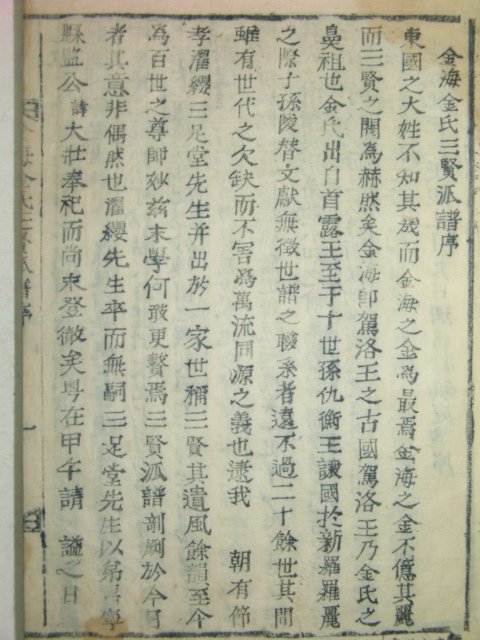 金海金氏三賢派譜序
東國之大姓不知其幾而金海之金爲最焉金海之金不億其麗
而三賢之閥爲赫然矣金海卽駕洛王之古國駕洛王乃金氏之
鼻祖也金氏出自首露王至于十世孫仇衡王讓國於新羅羅麗
之際子孫陵替文獻無徵世譜之聯系者遠不過二十餘世其間
雖有世代之欠缺而不害爲萬流同源之義也逮我 朝有節
孝濯纓三足堂先生并出於一家世稱三賢其遺風餘韻至今
爲百世之尊師玅玆末學何敢更贅焉三賢派譜剞劂於今日
者其意非偶然也濯纓先生卒而無嗣三足堂先生以弟
縣監公諱大壯奉祀而尚未登徹矣粤在甲午請 謚之日